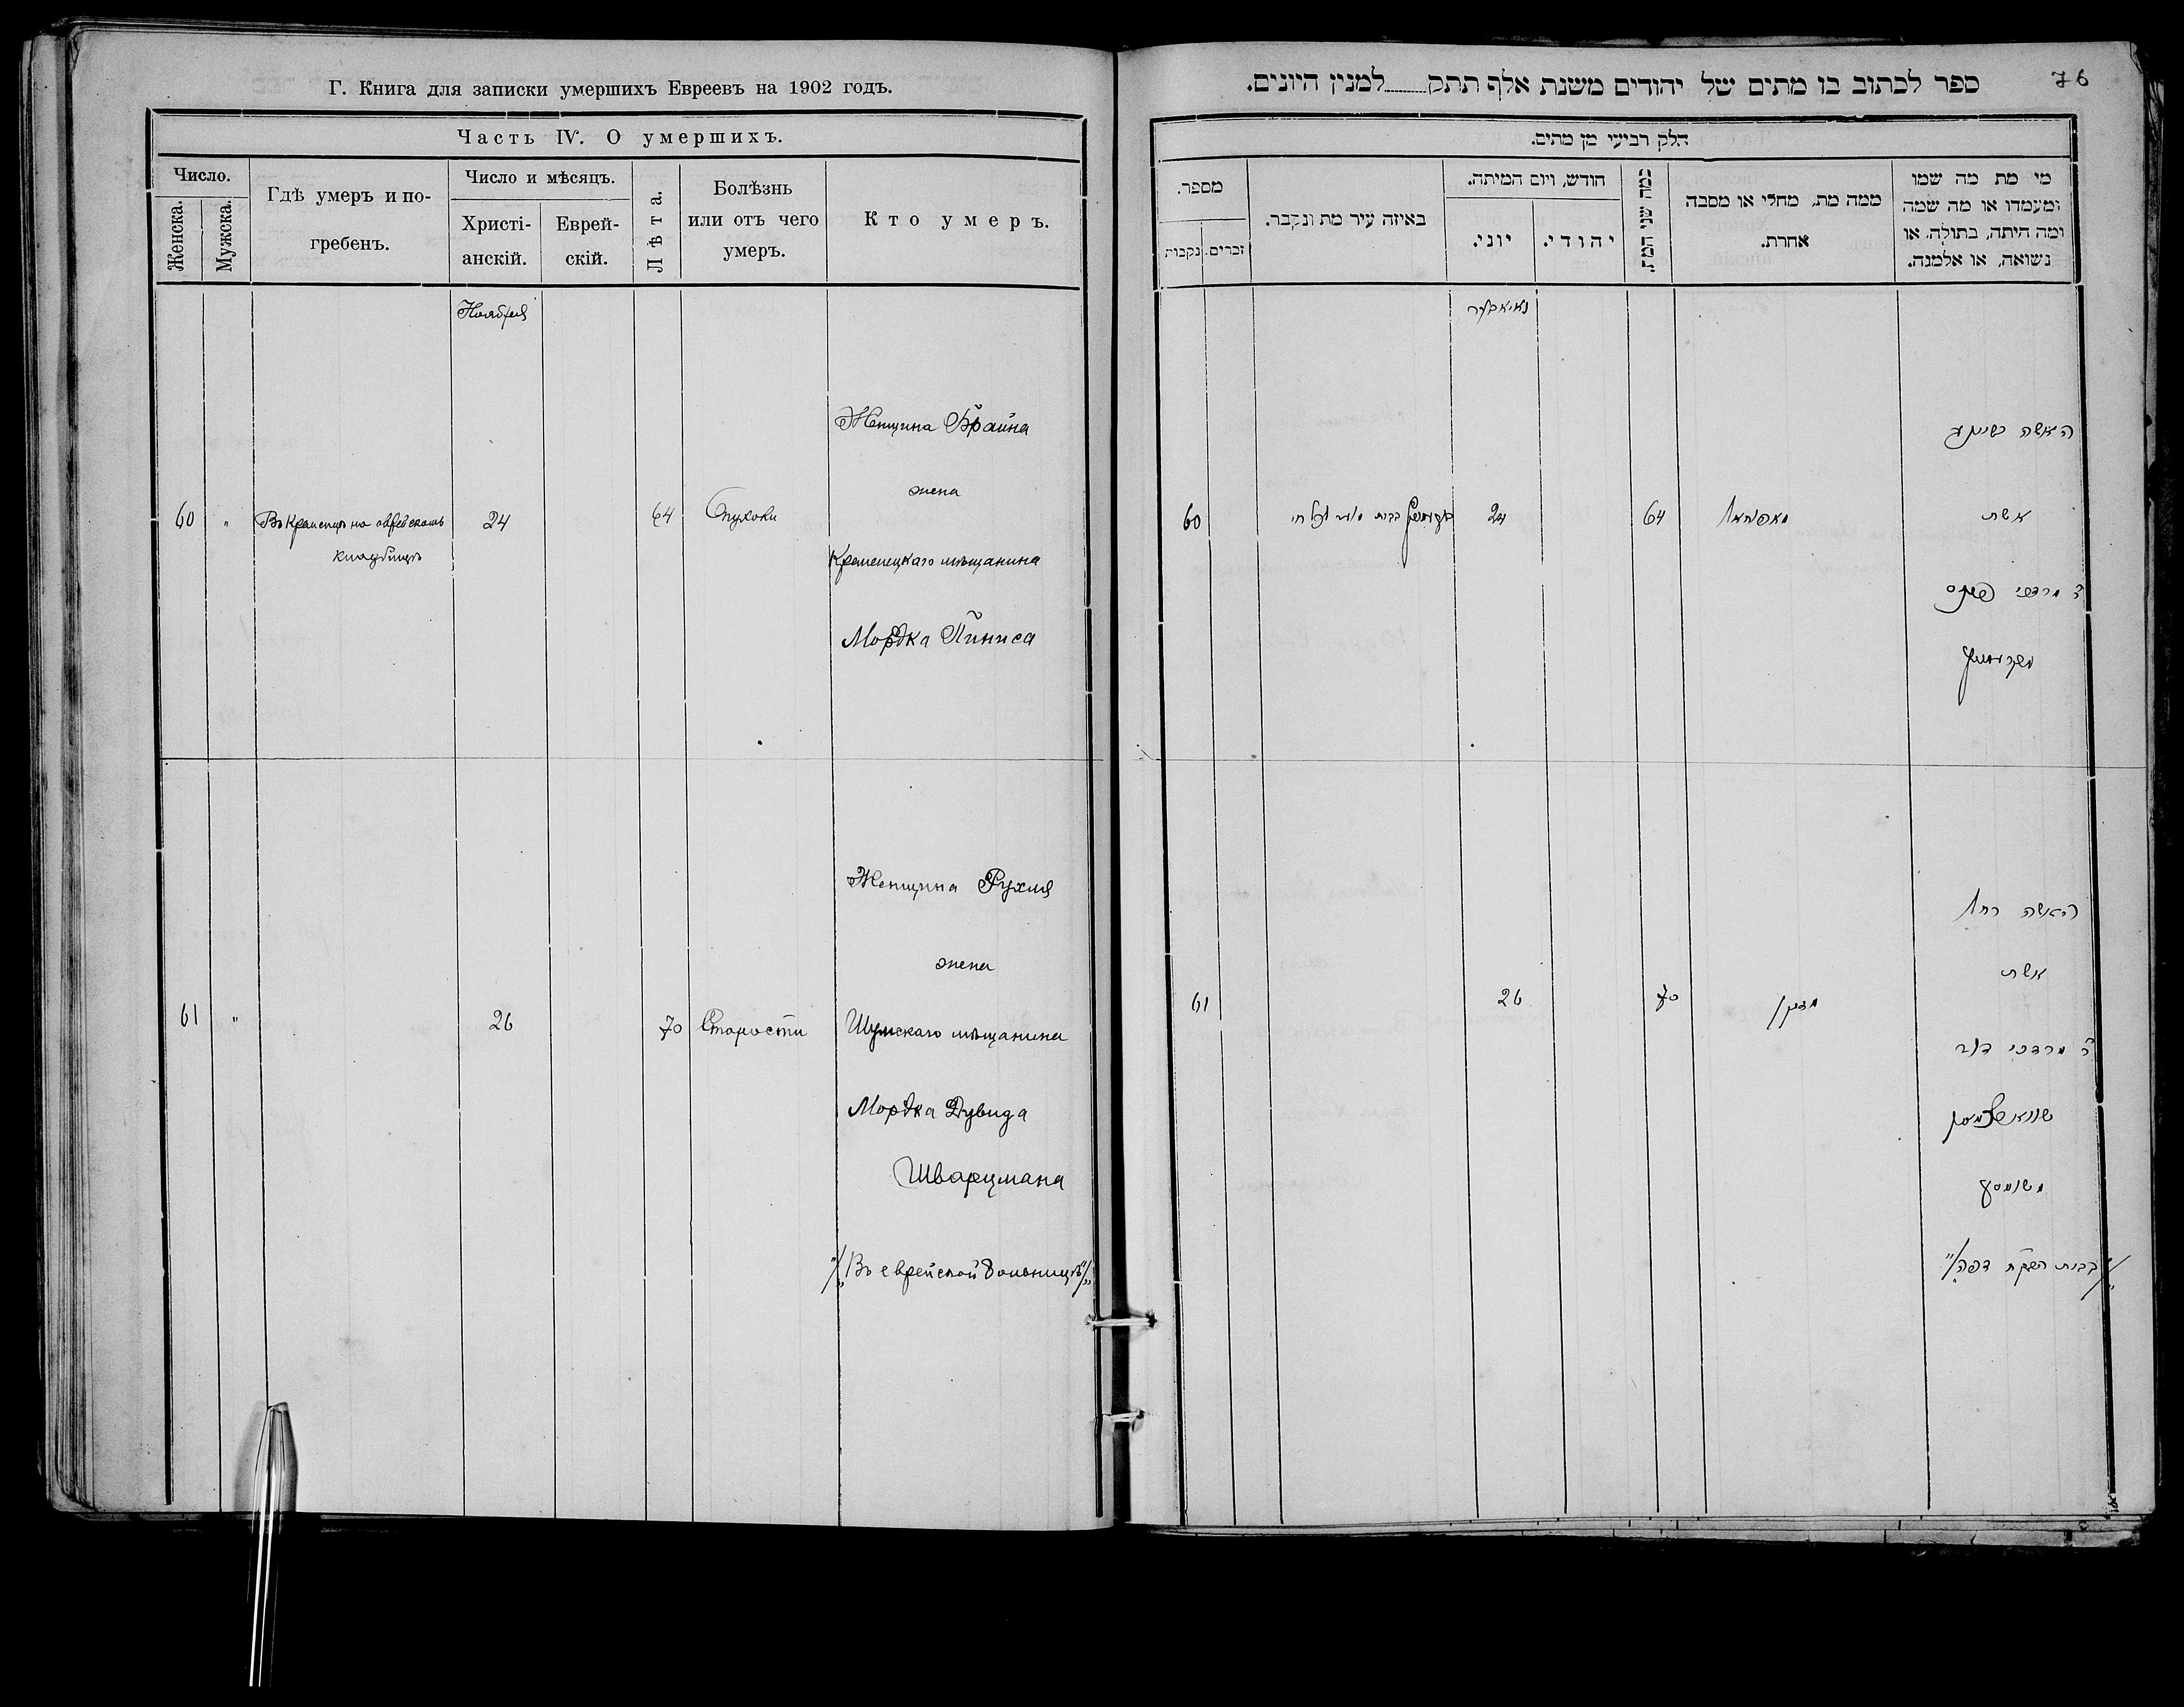 Г. Книга для записки умершихъ Евреевъ на 1902 годъ.
Часть IV. О умершихъ.
Число.
Женска.
Мужска.
Гдѣ умеръ и по-
гребенъ.
Число и мѣсяцъ.
Христі-
анскій.
Еврей-
скій.
Лѣта.
Болѣзнь
или отъ чего
умеръ.
Кто умеръ.
Ноября
60
"
Въ Кременцѣ на еврейскомъ
кладбищѣ
24
64
Опухоли
Женщина Брайна
жена
Кременецкаго мѣщанина
Мордка Пиниса
61
"
26
70
Старости
Женщина Рухля
жена
Шумскаго мѣщанина
Мордка Дувида
Шварцмана
"/Въ еврейской больницѣ/"
76
ספר לכתוב בו מתים של יהודים משנת אלף תתק למנין היונים.
חלק רביעי מן מתים.
מספר.
זכרים.
נקבות
באיזה עיר מת ונקבר.
חודש, ויום המיתה.
יוני.
יהודי.
כמה שני המת.
ממה מת, מחלי או מסבה
אחרת.
מי מת מה שמו
ומעמדו או מה שמה
ומה היתה, בתולה, או
נשואה, או אלמנה.
נאיאבער
60
24
64
האשה
אשת
ר' מרדכי
61
26
70
מזקן
האשה רחל
אשת
ר' מרדכי דוד
שווארצמאן
משומסק